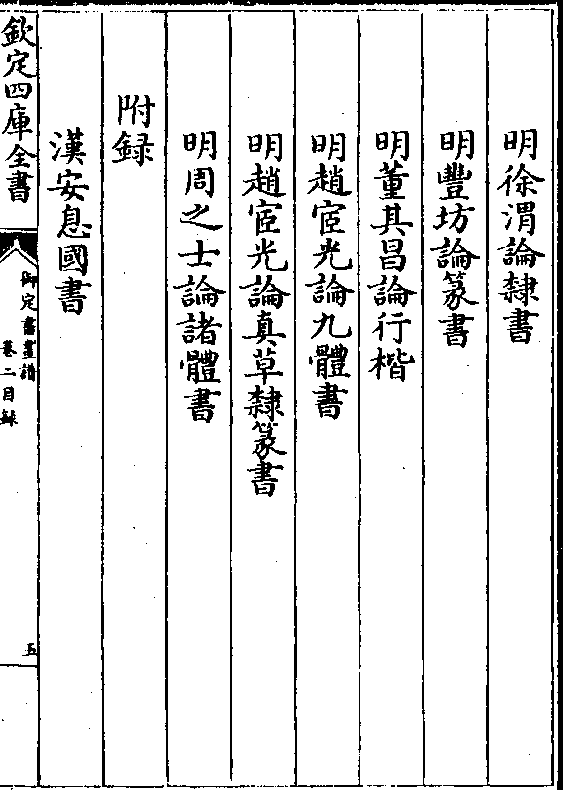 明徐渭論隸書
明豐坊論篆書
明董其昌論行楷
明趙宧光論九體書
明趙宧光論真草隸篆書
明周之士論諸體書
附録
漢安息國書
欽定四庫全書
御定書畫譜
卷二目錄
五